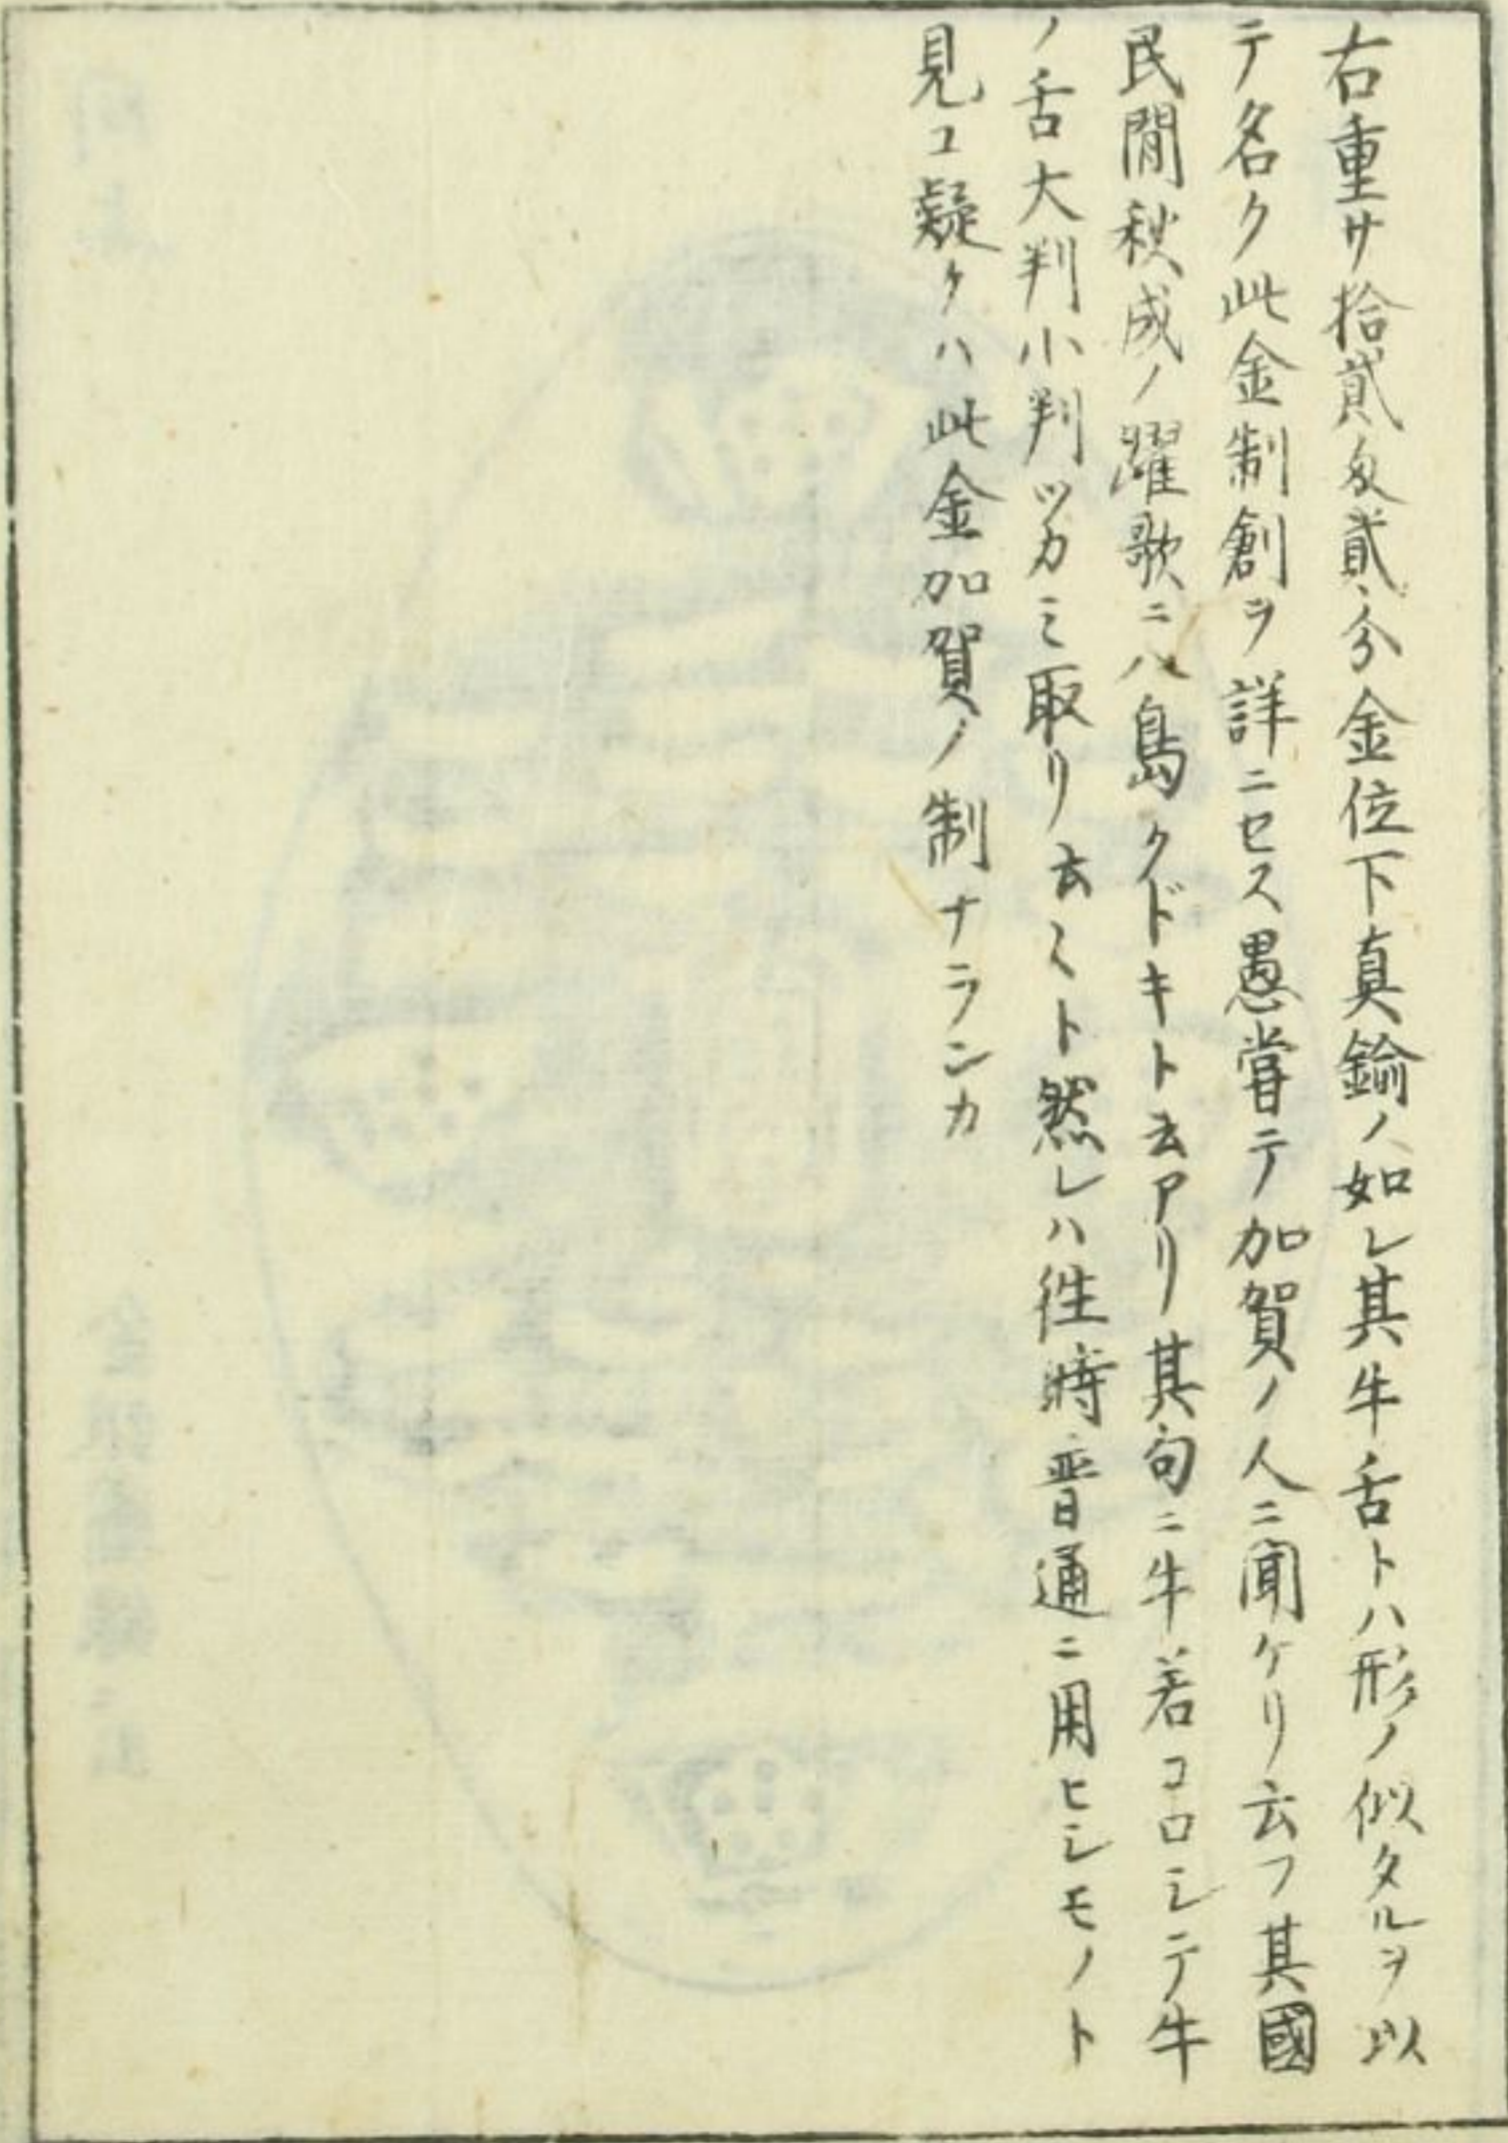 右重サ拾貳匁貳分金位下真鍮ノ如レ其牛舌トハ形ノ似タルヲ以
テ名ク此金制創ヲ詳ニセス愚嘗テ加賀ノ人ニ聞ケリ云フ其國
民間秋成ノ躍歌ニ八島クドキト云アリ其句ニ牛若コロシテ牛
ノ舌大判小判ツカミ取リ云〻ト然レハ徃時普通ニ用ヒシモノト
見ユ疑クハ此金加賀ノ制ナランカ